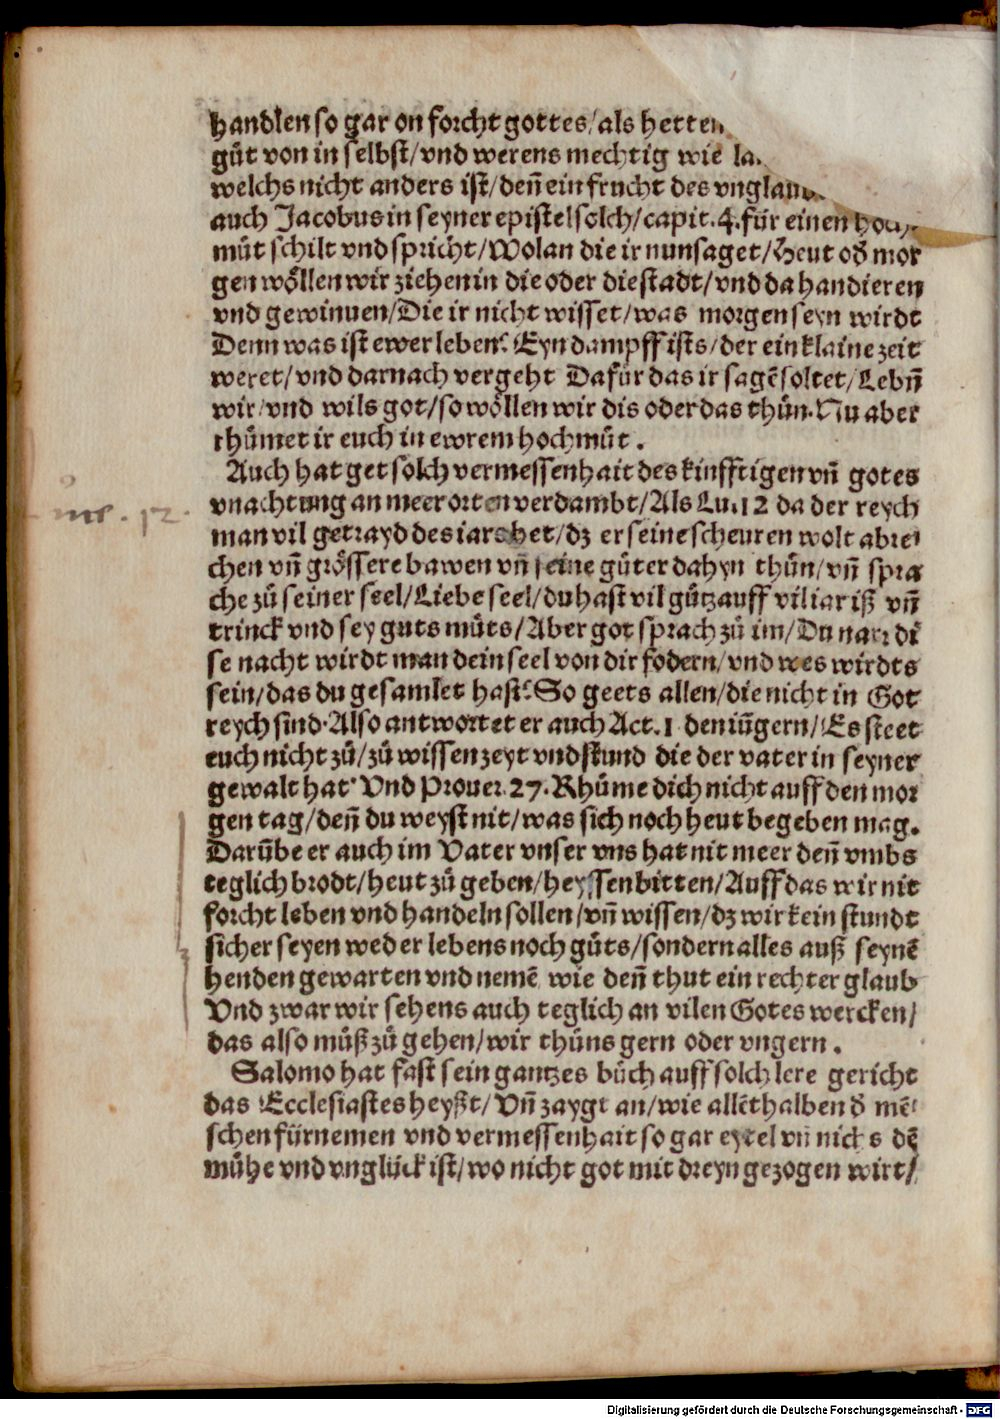 handlen so gar on forcht gottes/als hetten
gůt von in selbst/vnd werens mechtig wie
welchs nicht anders ist/deñ ein frucht des
auch Jacobus in seyner epistel solch/capit.4.für einen
můt schilt vnd spricht/Wolan die ir nun saget/Heut od̄ mor
gen wöllen wir ziehen in die oder die stadt/vnd da handieren
vnd gewinuen/Die ir nicht wisset/was morgen seyn wirdt
Denn was ist ewer leben? Eyn dampff ists/der ein klaine zeit
weret/vnd darnach vergeht Dafür das ir sagē soltet/Lebñ
wir/vnd wils got/so wöllen wir dis oder das thůn. Nu aber
rhůmet ir euch in ewrem hochmůt.
Auch hat get solch vermessenhait des kinfftigen vñ gotes
vnachtung an meer orten verdambt/Als Lu.12 da der reych
man vil getrayd des iars het/dz er seine scheuren wolt abre
chen vñ grössere bawen vñ seine gůter dahyn thůn/vñ spra
che zů seiner seel/Liebe seel/du hast vil gůtz auff vil iar iß vñ
trinck vnd sey guts můts/Aber got sprach zů im/Du narr di
se nacht wirdt man dein seel von dir fodern/vnd wes wirdts
sein/das du gesamlet hast? So geets allen/die nicht in Got
reych sind. Also antwortet er auch Act.1 den iůgern/Es steet
euch nicht zů/zů wissen zeyt vnd stund die der vater in seyner
gewalt hat. Vnd Prouer.27. Rhůme dich nicht auff den mor
gen tag/deñ du weyst nit/was sich noch heut begeben mag.
Darůbe er auch im Vater vnser vns hat nit meer deñ vmbs
teglich brodt/heut zů geben/heyssen bitten/Auff das wir nit
forcht leben vnd handeln sollen/vñ wissen/dz wir kein stundt
sicher seyen weder lebens noch gůts/sondern alles auß seynē
henden gewarten vnd nemē wie deñ thut ein rechter glaub
Vnd zwar wir sehens auch teglich an vilen Gotes wercken/
das also můß zů gehen/wir thůns gern oder vngern.
Salomo hat fast sein gantzes bůch auff solch lere gericht
das Ecclesiastes heyßt/Vñ zaygt an/wie allēthalben d̄ mē
schen fürnemen vnd vermessenhait so gar eytel vñ nichs dē
můhe vnd vnglück ist/wo nicht got mit dreyn gezogen wirt/
Digitalisierung gefördert durch die Deutsche Forschungsgemeinschaft - DFG